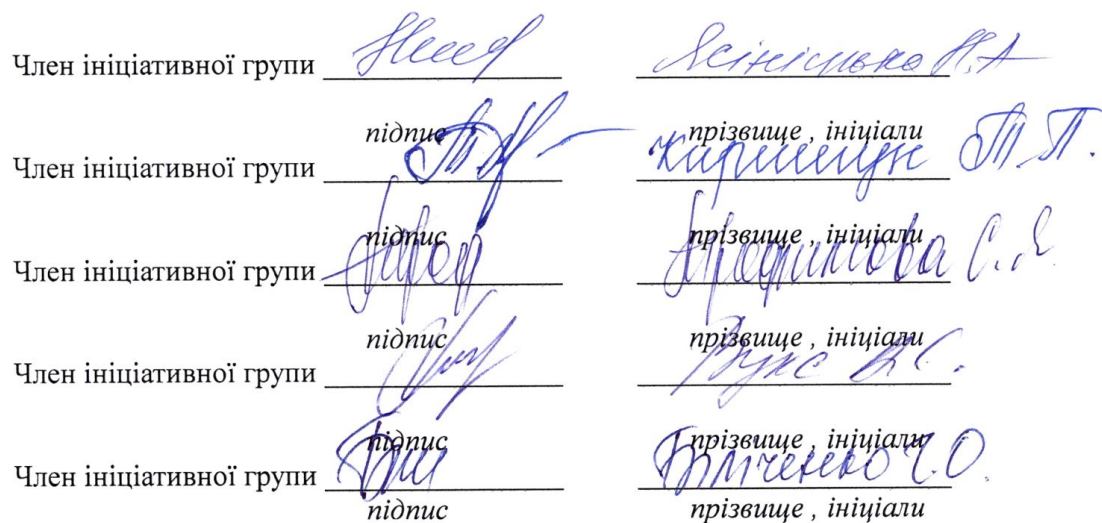 Член ініціативної групи Ясініцька Н.А
підпис прізвище , ініціали
Член ініціативної групи Киришчук Т.П.
підпис прізвище , ініціали
Член ініціативної групи Трофимова С.Я.
підпис прізвище , ініціали
Член ініціативної групи Вукс В.С.
підпис прізвище , ініціали
Член ініціативної групи
підпис прізвище , ініціали